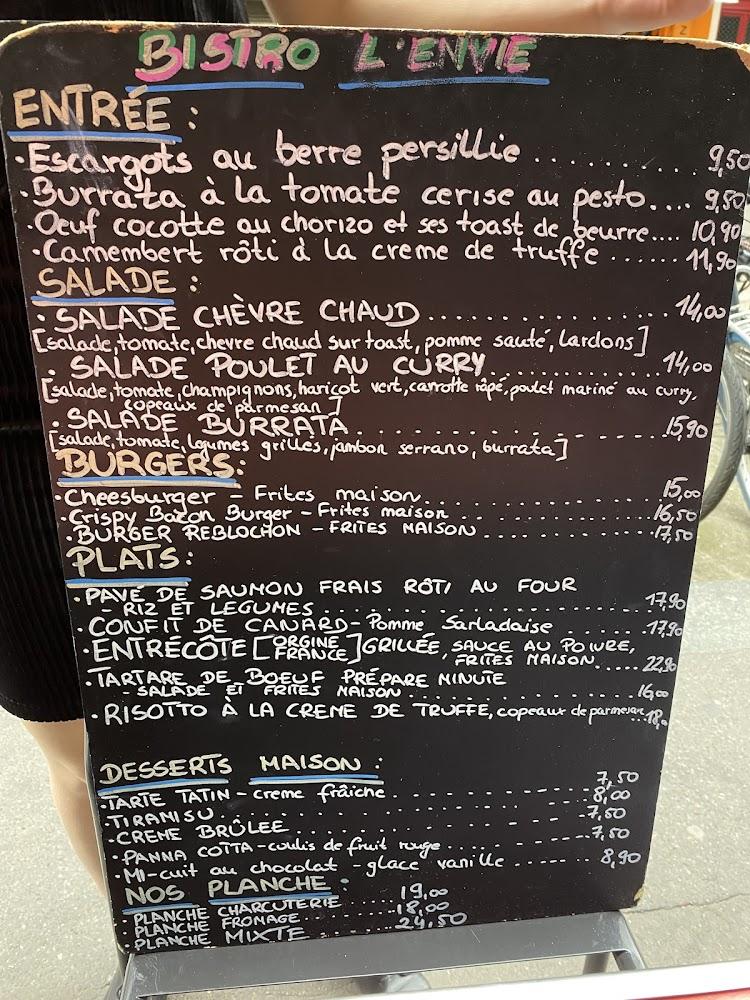 BISTRO L'ENVIE
ENTRÉE :
·Escargots au berre persillie .......... 9,50
·Burrata à la tomate cerise au pesto.... 9,50
·Oeuf cocotte au chorizo et ses toast de beurre.... 10,90
·Camembert rôti à la creme de truffe ...... 11,90
SALADE :
· SALADE CHÈVRE CHAUD .................. 14,00
[salade, tomate, chevre chaud sur toast, pomme sauté, lardons]
· SALADE POULET AU CURRY ............ 14,00
[salade, tomate, champignons, haricot vert, carrotte râpé, poulet mariné au curry,
copeaux de parmesan]
· SALADE BURRATA .................. 15,90
[salade, tomate, légumes grillés, jambon serrano, burrata]
BURGERS:
·Cheesburger - Frites maison .............. 15,00
·Crispy Bacon Burger - Frites maison .......... 16,50
·BURGER REBLOCHON - FRITES MAISON .......... 17,50
PLATS:
·PAVÉ DE SAUMON FRAIS RÔTI AU FOUR
- RIZ ET LEGUMES .................. 17,90
·CONFIT DE CANARD - Pomme Sarladaise ...... 17,90
·ENTRÉCÔTE [ORGINE FRANCE] GRILLÉE, SAUCE AU POIVRE,
FRITES MAISON..... 22,90
·TARTARE DE BOEUF PRÉPARE MINUTE
- SALADE ET FRITES MAISON .............. 16,00
·RISOTTO À LA CREME DE TRUFFE, copeaux de parmesan...18,0
DESSERTS MAISON :
·TARTE TATIN - creme fraîche .......... 7,50
·TIRAMISU .................. 8,00
·CREME BRÛLEE .............. 7,50
·PANNA COTTA - coulis de fruit rouge .......... 7,50
·MI-cuit au chocolat - glace vanille ...... 8,90
NOS PLANCHE :
·PLANCHE CHARCUTERIE ...... 19,00
·PLANCHE FROMAGE ...... 18,00
·PLANCHE MIXTE ...... 24,50